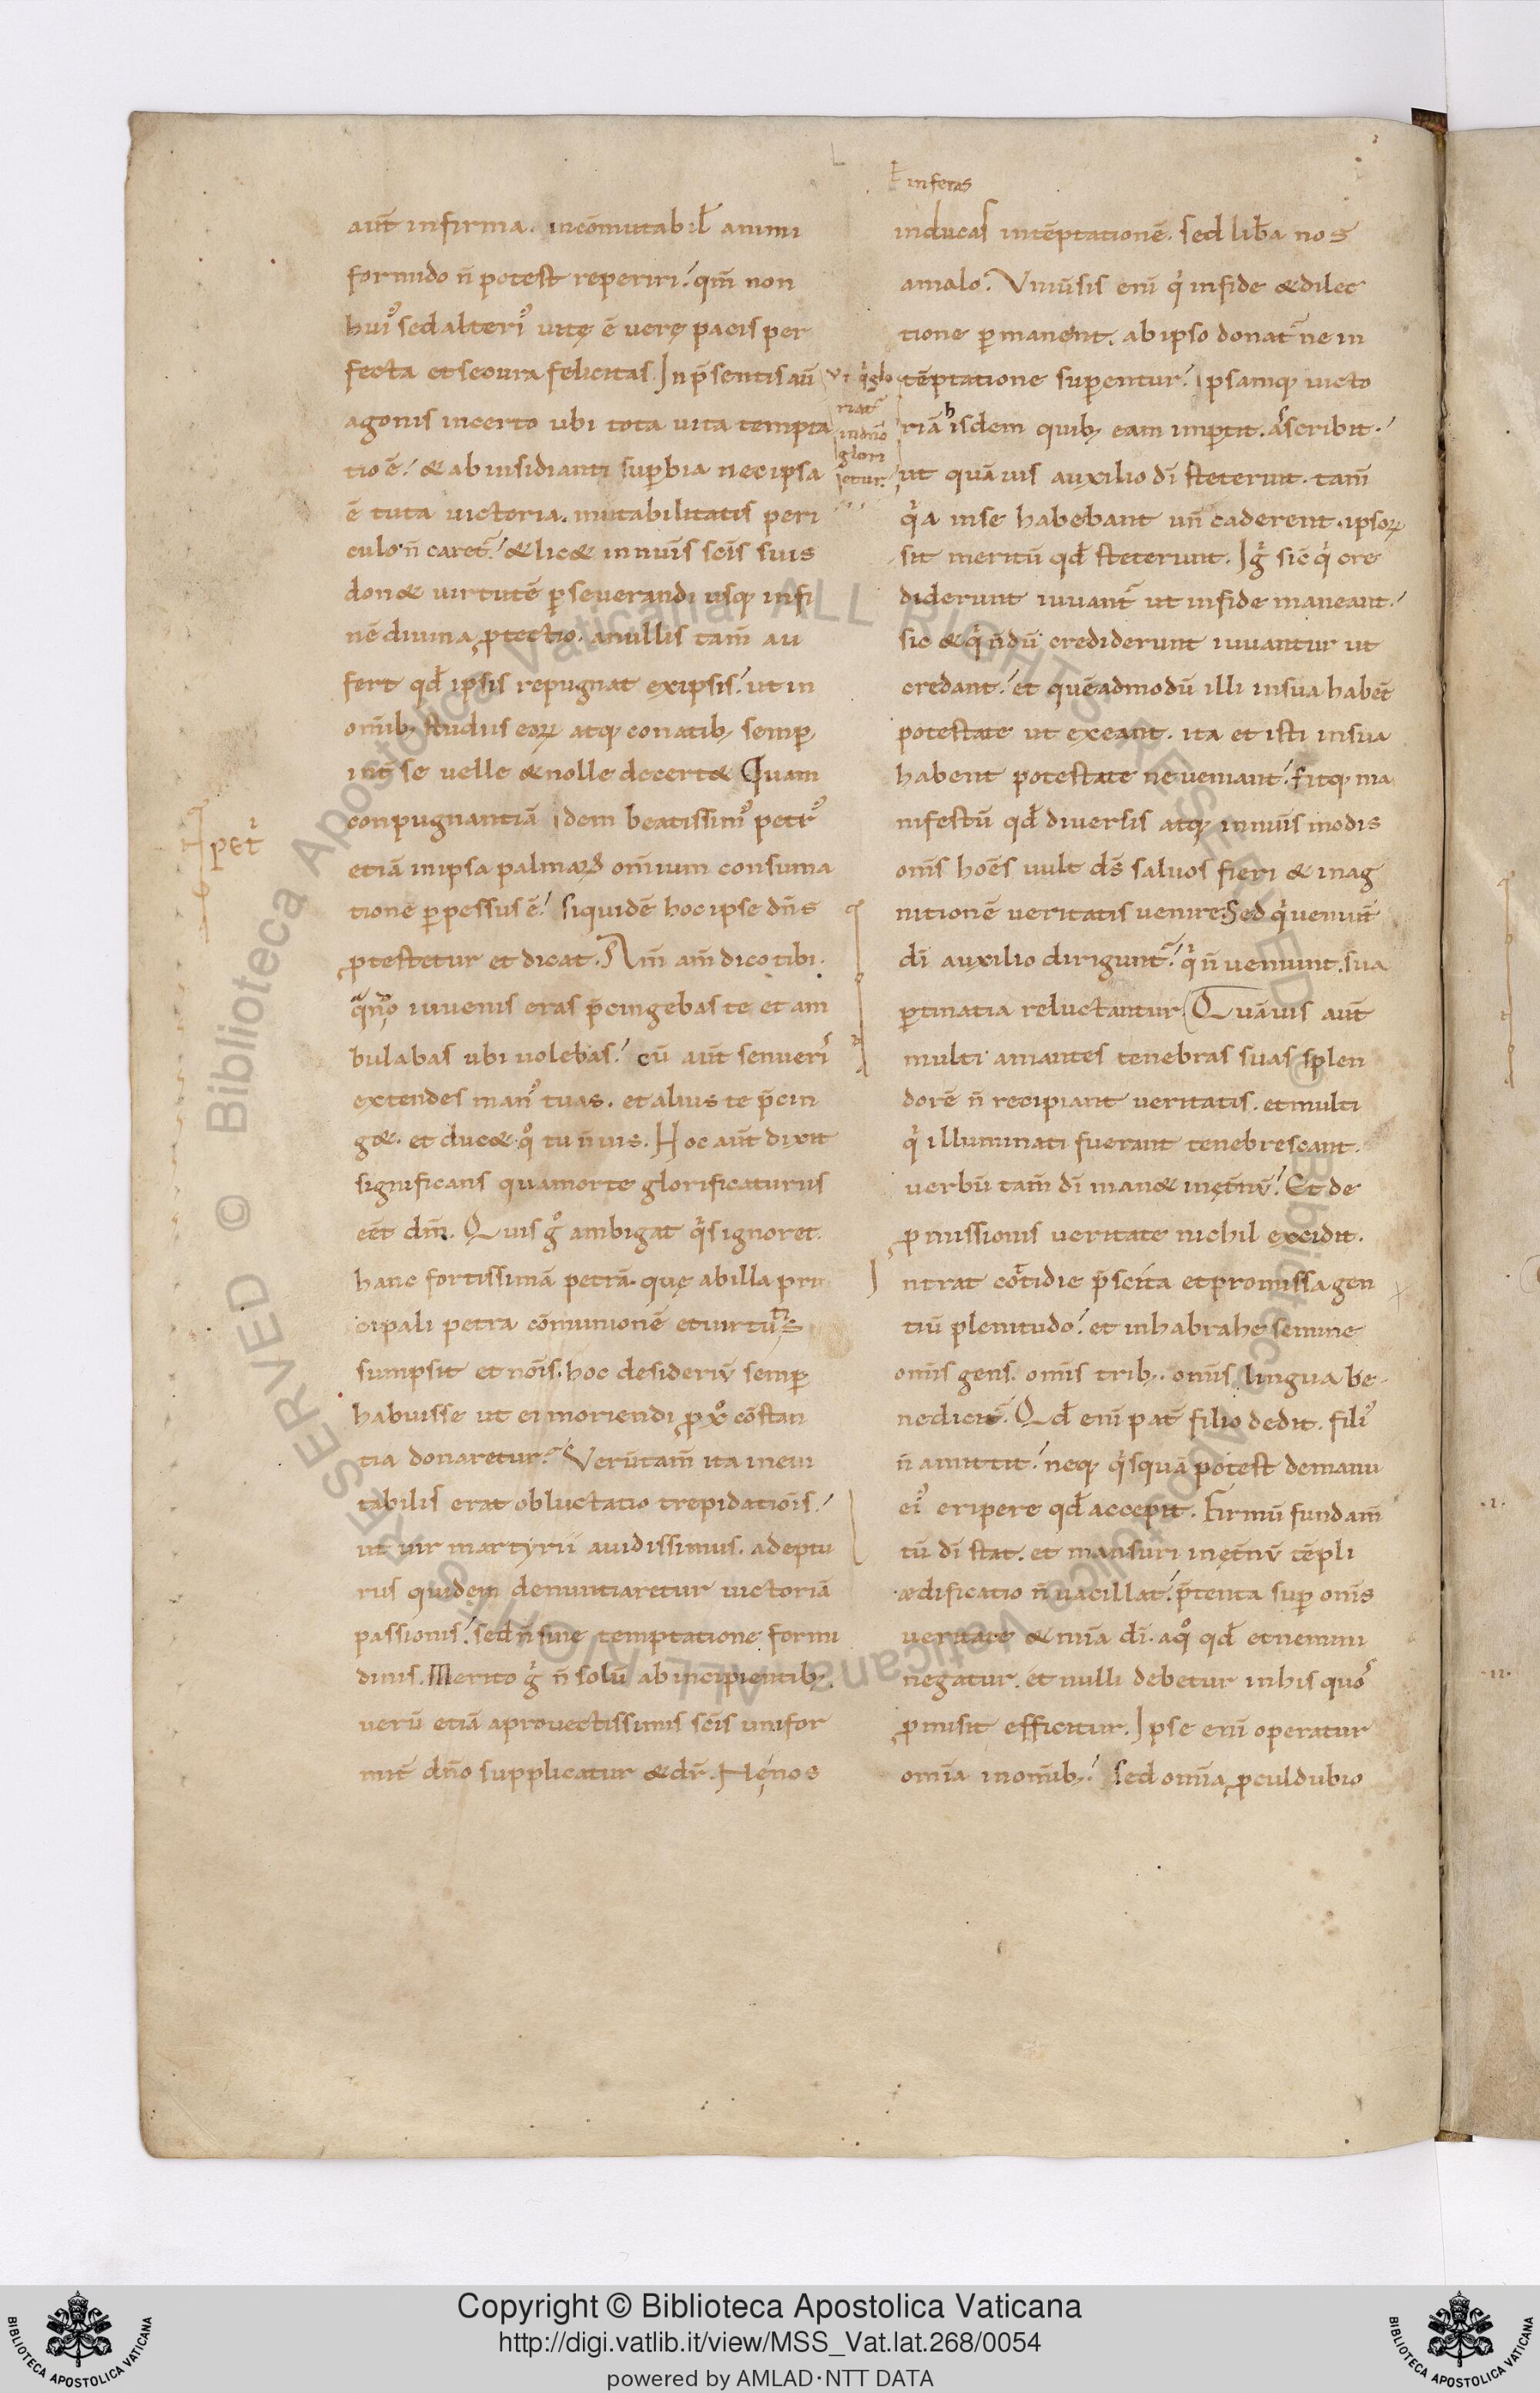 aut̄ infirma. incōmutabil̄ animi
formido n̄ potest reperiri? qm̄ non
hui᷒ sed alteri᷒ uitę ē uerę pacis per
fecta et secura felicitas. In p̄sentis au̅
agonis incerto ubi tota uita tempta
tio ē? & ab insidianti sup̱bia nec ipsa
ē tuta uictoria. mutabilitatis peri
culo n̄ caret᷑? & lic& innum̄is sc̄is suis
don& uirtutē ꝑseuerandi usq; in fi
nē diuina ꝓtectio. a nullis tam̄ au
fert qd̄ ipsis repugnat ex ipsis? ut in
om̄ib; studiis eoꝝ atq; conatib; semꝑ
int̄ se uelle & nolle decert& Quam
conpugnantiā idem beatissim᷒ petr᷒
etiā in ipsa palmaꝝ om̄ium consuma
tione ꝑpessus ē? siquidē hoc ipse dn̄s
ꝓtestetur et dicat. Am̄ am̄ dico tibi.
iuuenis eras p̄cingebas te et am
bulabas ubi uolebas? cū aut̄ senueris
extendes man᷒ tuas. et alius te p̄cin
g&. et duc& qͦ tu n̄ uis. Hoc aut̄ dixit
significans qua morte glorificaturus
eēt dm̄. Quis gͦ ambigat qͥs ignoret.
hanc fortissimā petrā. quę ab illa prin
cipali petra cōmunionē et uirtutis
sumpsit et nōis. hoc desideriū semꝑ
habuisse ut ei moriendi ꝓ xͦ cōstan
tia donaretur? Verūtam̄ ita ineui
tabilis erat obluctatio trepidatiōis?
ut uir martyrii auidissimus. adeptu
rus quidem denuntiaretur uictoriā
passionis? sed n̄ sine temptatione formi
dinis. Merito gͥ n̄ solū ab incipientib;
uerū etiā a prouectissimis sc̄is unifor
mit̄ dn̄o supplicatur & dr̄. Nęnos
inferas
inducas in tēptationē. sed lib̄a nos
a malo. Vniūsis eni̅ qͥ in fide & dilec
tione ꝑmanent. ab ipso donat᷑ ne in
tēptatione suꝑentur? ipsamq; uicto
riā hisdem quib; eam imꝑtit. ascribit?
ut quāuis auxilio dī steterint. tam̄
qͥa in se habebant un̄ caderent. ipsoꝝ
sit meritū qd̄ steterunt. Igͥ sic̄ qͥ cre
diderunt iuuant᷑ ut in fide maneant?
sic & qͥ n̄dū crediderunt iuuantur ut
credant? et quēadmodū illi in sua habēt
potestate ut exeant. ita et isti in sua
habent potestate ne ueniant? fitq; ma
nifestū qd̄ diuersis atq; innum̄is modis
om̄s hoēs uult ds̄ saluos fieri & in ag
nitionē ueritatis uenire. Sed qͥ ueniunt̄
dī auxilio dirigunt᷑? qͥ n̄ ueniunt. sua
ꝑtinatia reluctantur. Quāuis aut̄
multi amantes tenebras suas splen
dorē n̄ recipiant ueritatis. et multi
qͥ illuminati fuerant tenebrescant.
uerbū tam̄ dī man& in ęt̄nū? Et de
ꝓmissionis ueritate nichil excidit.
Intrat cotidie p̄scita et promissa gen
tiū plenitudo? et in habrahę semine
om̄is gens. om̄is trib;. om̄is lingua be
nedicit᷑. Qd̄ eni̅ pat̄ filio dedit. fili᷒
n̄ amittit? neq; qͥsquā potest de manu
ei᷒ eripere qd̄ accepit. Firmū fundam̄
tū dī stat. et mansuri in ęt̄nū tēpli
ædificatio n̄ uacillat? p̄tenta suꝑ om̄s
ueritate & mia̅ dī. a qͦ qd̄ et nemini
negatur. et nulli debetur in his quos
ꝓmisit efficitur. Ipse eni̅ operatur
omīa in om̄ib;? sed omīa ꝓculdubio
Vt qͥ glo
riat᷑
in dn̄o
glori
etur.
petͥ
.I.
.II.
Copyright © Biblioteca Apostolica Vaticana
http://digi.vatlib.it/view/MSS_Vat.lat.268/0054
powered by AMLAD·NTT DATA
BIBLIOTECA APOSTOLICA VATICANA
BIBLIOTECA APOSTOLICA VATICANA